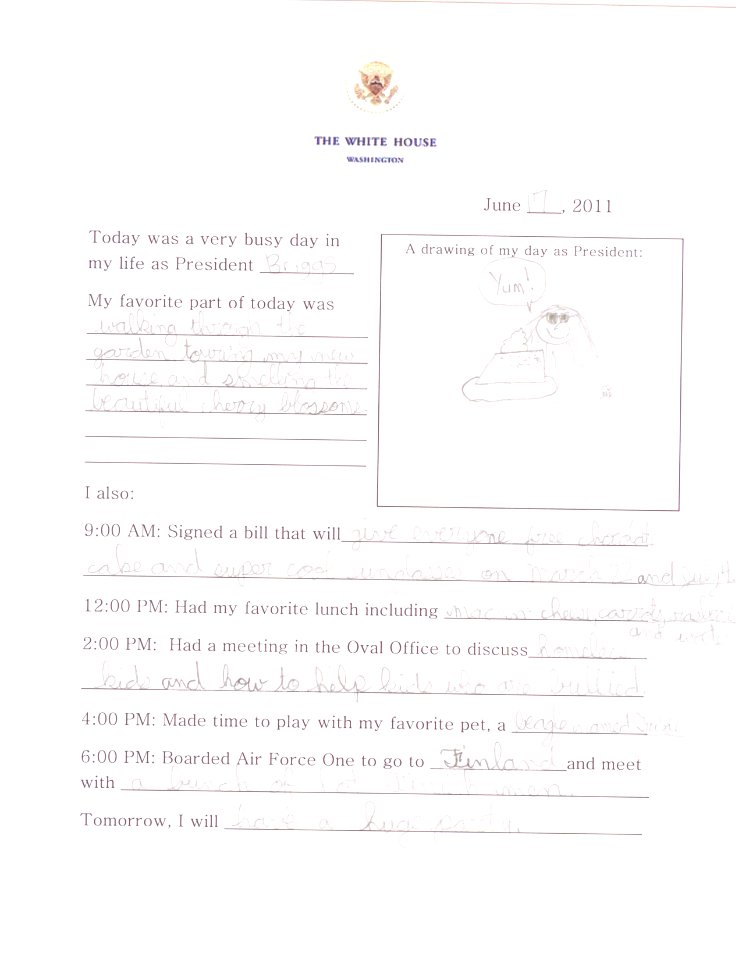 THE WHITE HOUSE
WASHINGTON
June 17, 2011
Today was a very busy day in
my life as President Briggs
A drawing of my day as President:
Yum!
My favorite part of today was
walking through the
garden touring my new
house and smelling the
beautiful cherry blossoms
I also:
9:00 AM: Signed a bill that will give everyone free chocolate
cake and super cool sundaes on March and
12:00 PM: Had my favorite lunch including mac n chees, carrots,
and
2:00 PM: Had a meeting in the Oval Office to discuss homeless
kids and how to help kids who are bullied
4:00 PM: Made time to play with my favorite pet, a
6:00 PM: Boarded Air Force One to go to Finland and meet
with a bunch
Tomorrow, I will have a huge party.